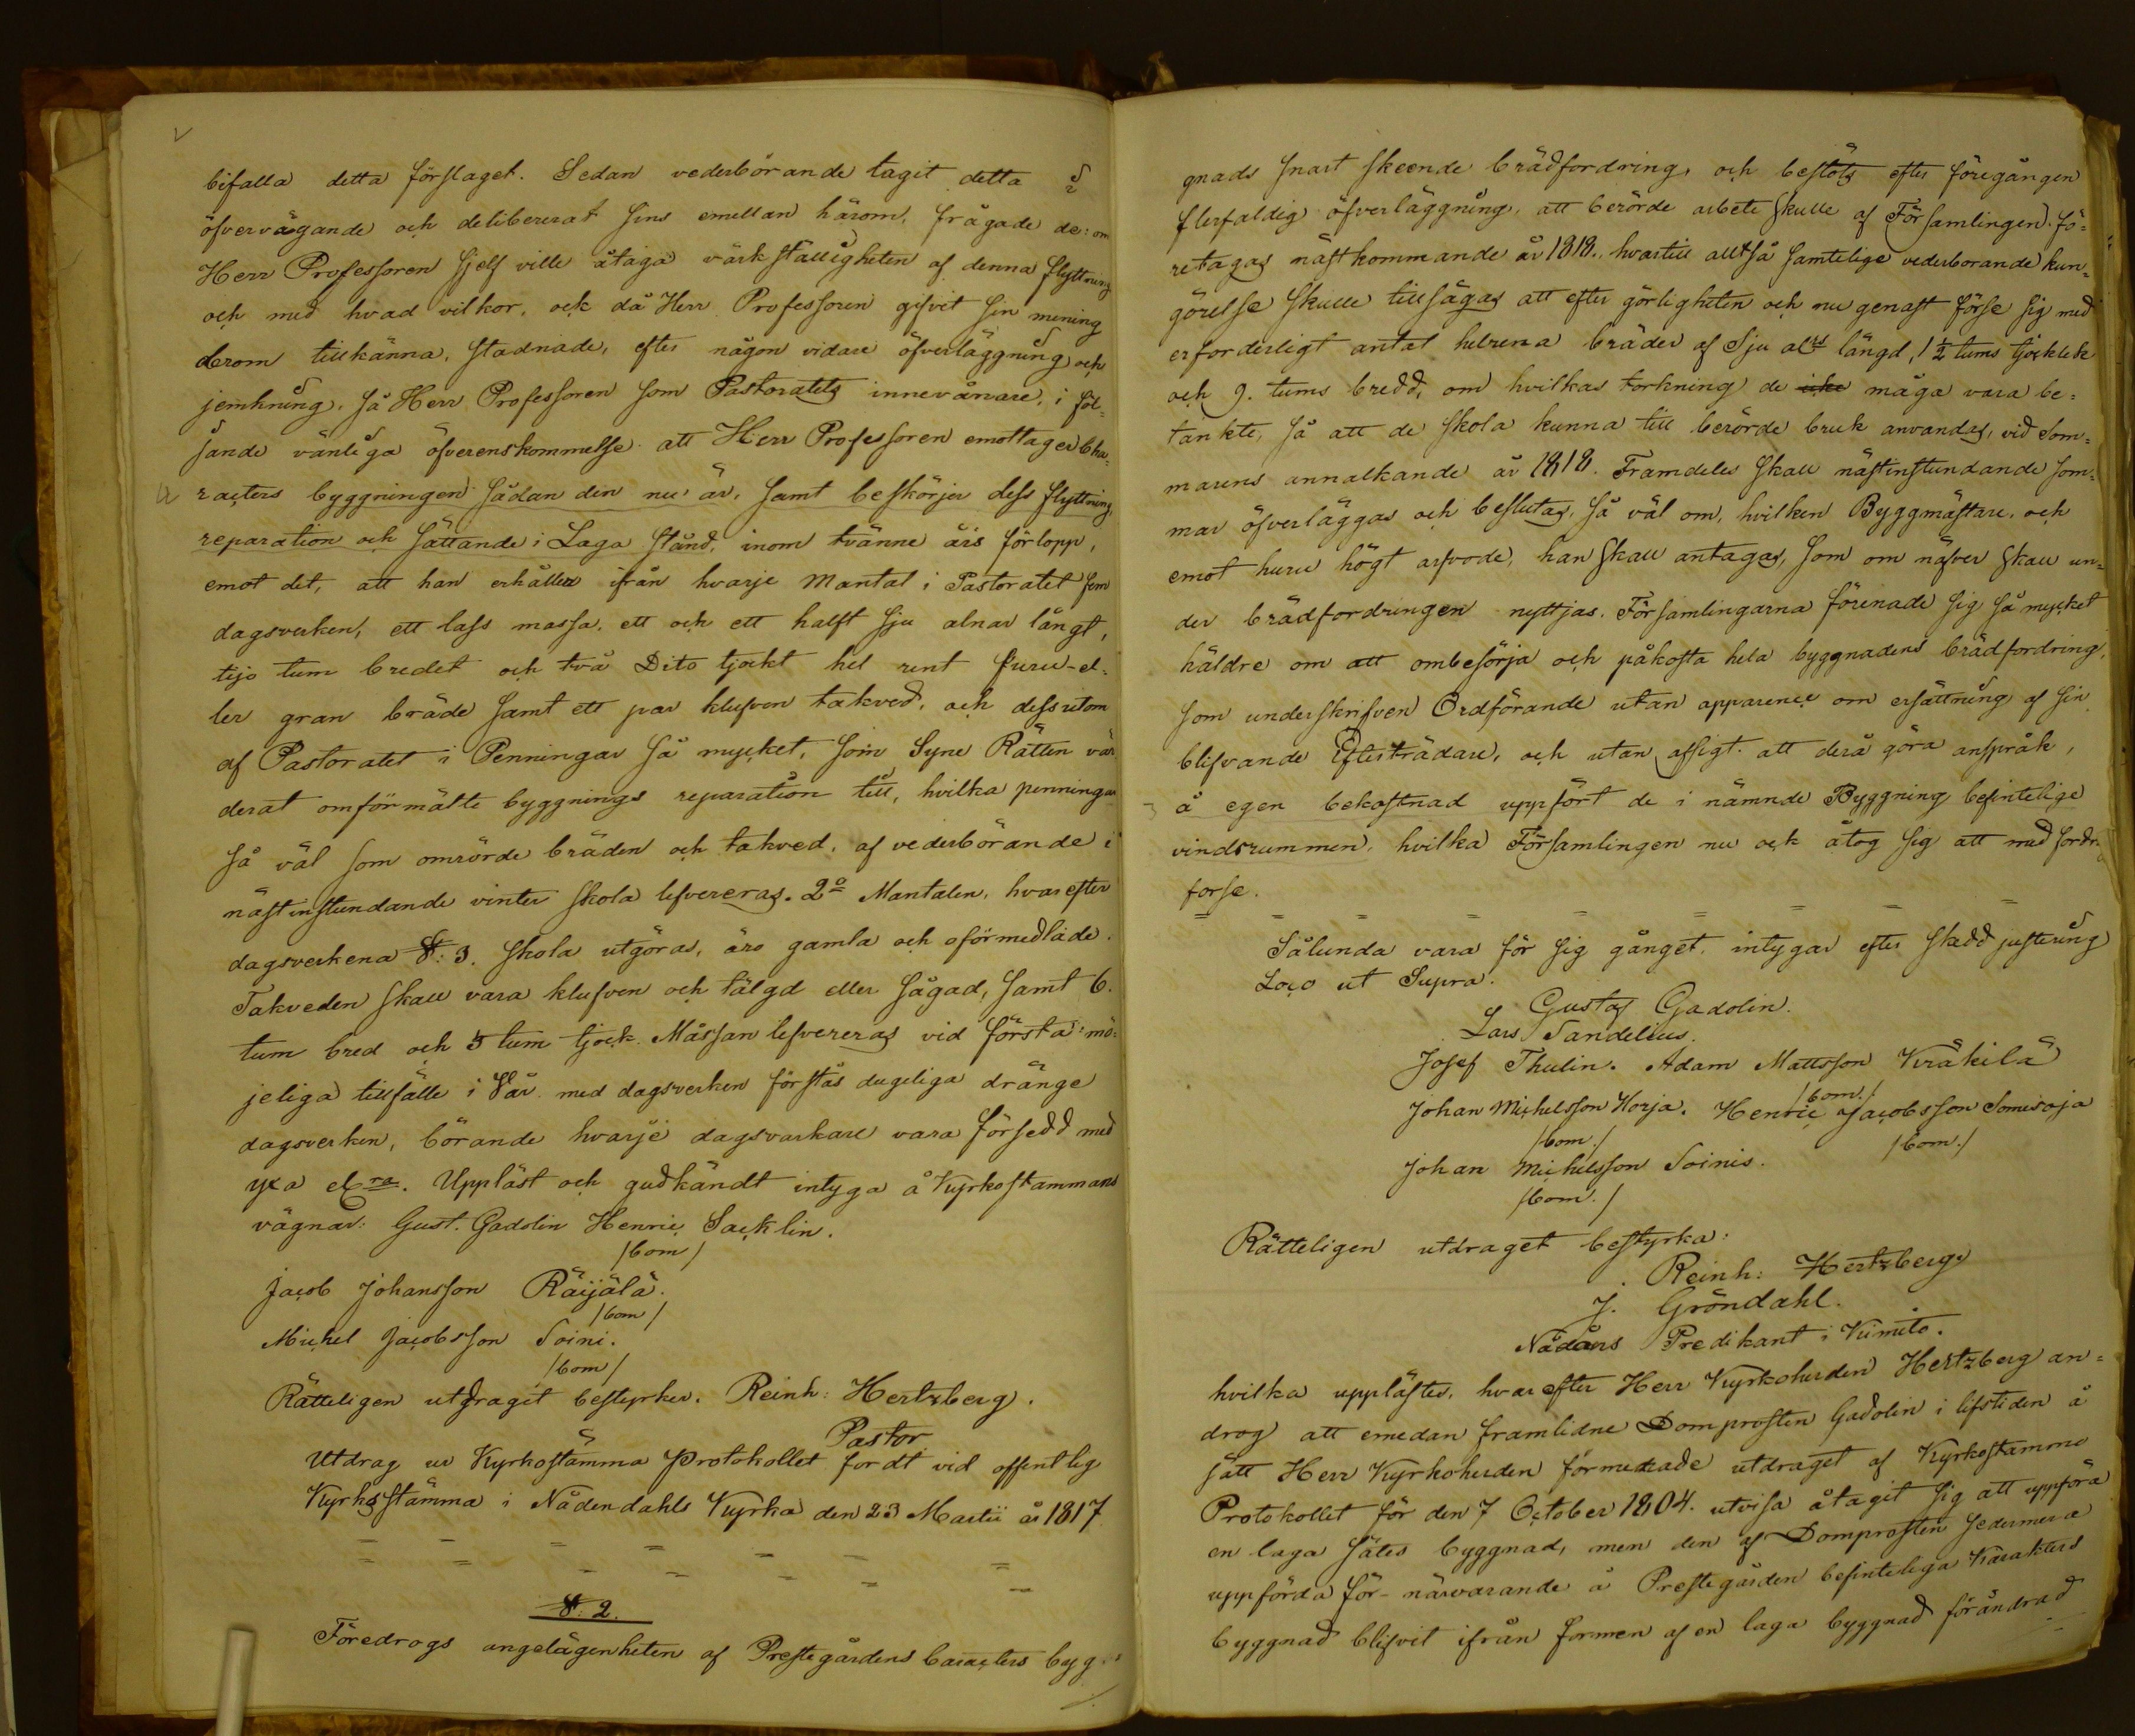 bifalla detta förslaget. Sedan vederbörande tagit detta i
öfvervägande och delibererat sins emellan härom, frågade de: om
Herr Professoren sjelf ville åtaga värkställigheten af denna flyttning
och med hvad vilkor, ock då Herr Professoren gifvit sin mening
derom tillkänna, stadnade, efter någon vidare öfverläggning och
jemkning, så Herr Professoren som Pastoratets innevånare, i föl-
jande vänliga öfverenskommelse: att Herr Professoren emottager Cha-
racters byggningen sådan den nu är, samt beskörjer dess flyttning,
reparation och sättande i Laga stånd, inom tvänne års förlopp,
emot det, att han erhåller ifrån hvarje Mantal i Pastoratet fem
dagsverken, ett lass massa, ett och ett halft sju alnar långt,
tijo tum bredet och två Dito tjockt hel rent furu- el-
ler gran bräde samt ett par klufven takved, och dessutom
af Pastoratet i Penningar så mycket, som Syne Rätten vär-
derat omförmälte byggnings reparation till, hvilka penningar
så väl som omrörde bräden och takved, af vederbörande i
nästinstundande vinter skola lefvereras. 2o Mantalen, hvarefter
dagsverkena §: 3. skola utgöras, äro gamla och oförmedlade.
Takveden skall vara klufven och tälgd eller sågad, samt 6.
tum bred och 3 tum tjock. Måssan lefvereras vid första mö-
jeliga tillfälle i Vår. med dagsverken förstås dugeliga dränge
dagsverken, börande hvarje dagsvarkare vara försedd med
yxa etc. Uppläst och gudkändt intyga å Kyrkostammans
vägnar: Gust. Gadolin Henric Sacklin.
/bom/
Jacob Johansson Räijälä.
/bom/
Michel Jacobsson Soini.
/bom/
Rätteligen utdraget bestyrker. Reinh: Hertzberg.
Pastor
Utdrag ur Kyrkostämma Protokollet fördt vid offentlig
Kyrkostämma i Nådendahls Kyrka den 23 Martii år 1817
§: 2.
Föredrogs angelägenheten af Prestegårdens caracters byg-
gnads snart skeende brädfordring, och beslöts efter föregången
flerfaldig öfverläggning, att berörde arbete skulle af Församlingen fö-
retagas nästkommande år 1818., hvartill alltså samtelige vederborande kun-
görelse skulle tillsägas att efter görligheten och nu genast förse sig med
erforderligt antal helrena bräder af Sju alrs längd, 1 1/2 tums tjocklek
och 9. tums bredd, om hvilkas torkning de icke måga vara be-
tänkte, så att de skola kunna till berörde bruk anvandas, vid Som-
marens annalkande år 1818. Framdeles skall nästinstundande som-
mar öfverläggas och beslutas, så väl om, hvilken Byggmästare, och
emot huru högt arfvode, han skall antagas, som om näfver skall un-
der brädfordringen nyttjas. Församlingarna förenade sig så mycket
häldre om att ombesörja och påkosta hela byggnadens brädfordring,
som underskrifven Ordförande utan apparence om ersättning af sin
blifvande Efterträdare, och utan afsigt att derå göra anspråk,
å egen bekostnad uppfört de i nämnde Byggning befintelige
vindsrummen, hvilka Församlingen nu ock åtog sig att med fordring
forse.
Sålunda vara för sig gånget, intygar efter skedd justering
Loco ut Supra.
Gustaf Gadolin.
Lars Sandelius.
Josef Thulin. Adam Mattsson Kräkilä
/bom./
Johan Michelsson Horja. Henric Jacobsson Somisoja
/bom./ /bom./
Johan Michelsson Soinis.
/bom./
Rätteligen utdraget bestyrka:
Reinh: Hertzberg
J. Gröndahl.
Nådårs Predikant i Kimito.
hvilka upplästes, hvarefter Herr Kyrkoherden Hertzberg an-
drog att emedan framlidne Domprosten Gadolin i lifstiden å
sätt Herr Kyrkoherden förmedade utdraget af Kyrkostamme
Protokollet för den 7 October 1804. utvisa åtagit sig att uppföra
en laga Sätes byggnad, men den af Domprosten sedermera
uppförda för-närvarande å Prestegården befintelige Karakters
byggnad blifvit ifrån formen af en laga byggnad förändrad